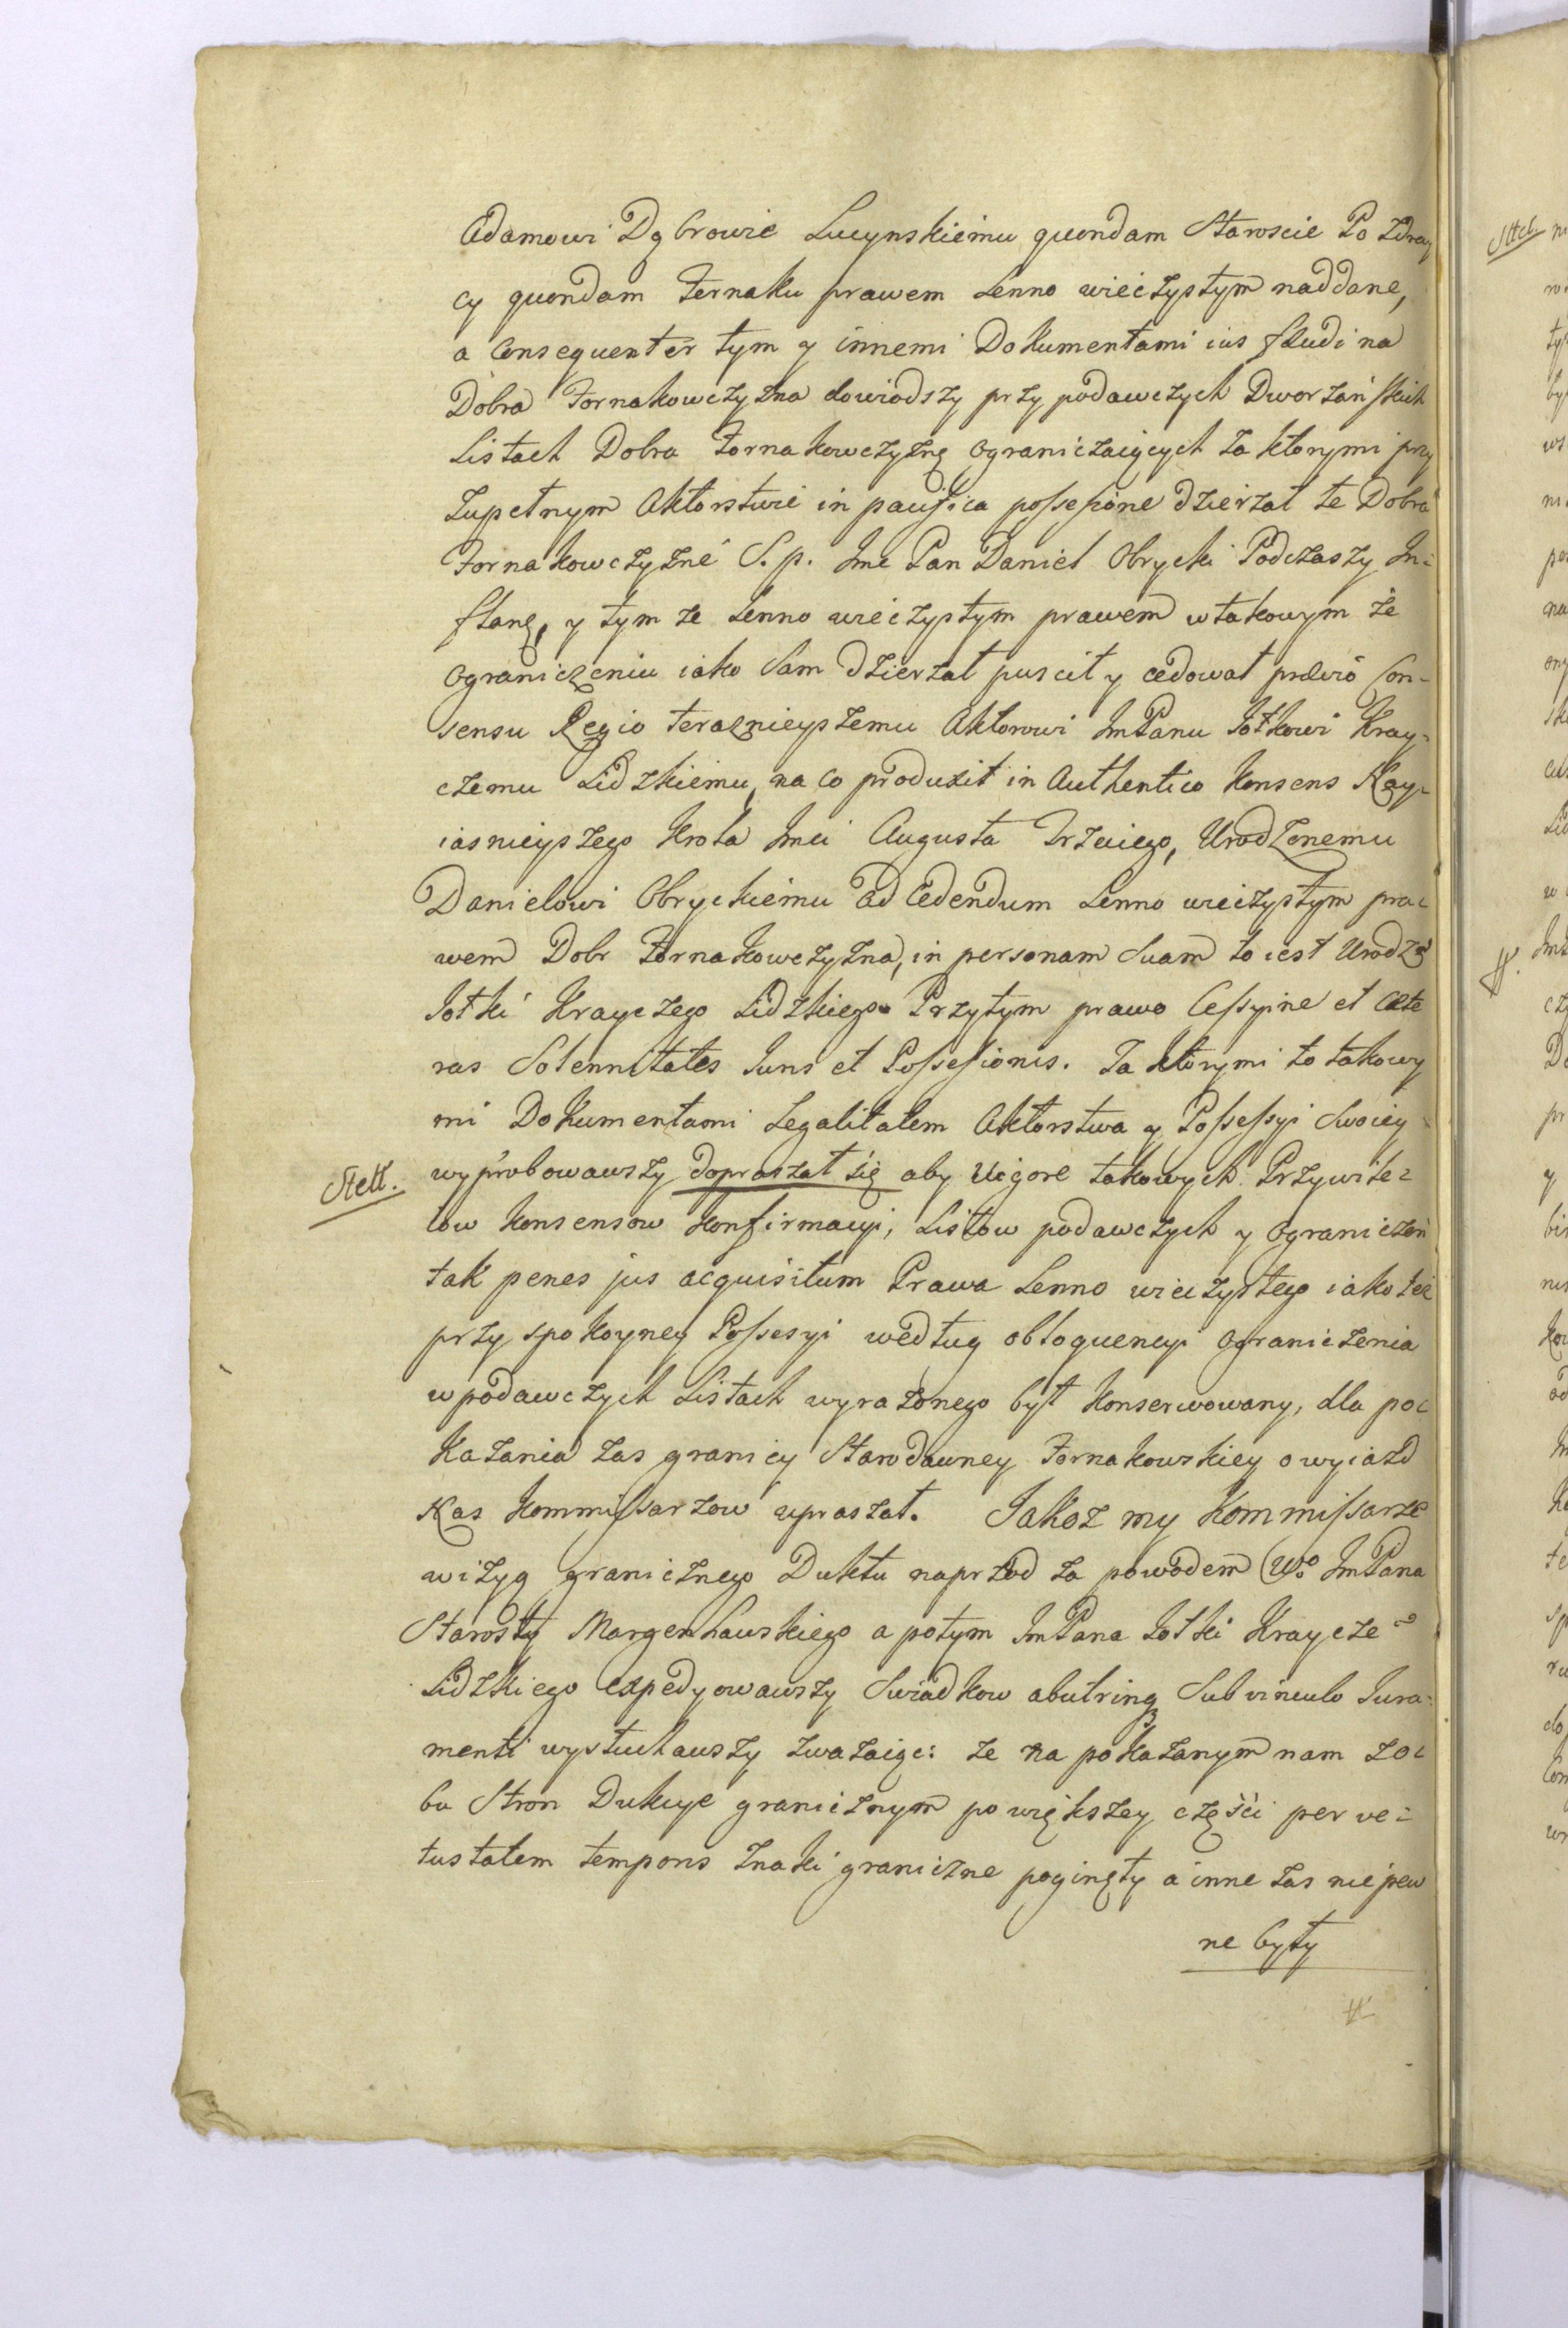 Adamowi Dąbrowie Lucynskiemu quondam Staroscie Po zdray
cy quondam Fornaku prawem Lenno wieczystym naddane,
a Consequenter tym y innemi Dokumentami ius feudi na
Dobra Fornakowczyzna dowiodszy przy podawczych Dworzańskich
Listach Dobra Fornakowczyznę ograniczaiących za ktorymi przy
zupełnym Aktorstwie in pacifica possesione dzierzał te Dobra
Fornakowczyznę S. p. Jmc Pan Daniel Obrycki Podczaszy In-
flanę, y tym ze Lenno wieczystym prawem w takowym że
ograniczeniu iako Sam dzierzał puscił y cedował prævio Con-
sensu Regio teraznieyszemu Aktorowi JmPanu Jotkowi Kray-
czemu Lidzkiemu, na co produxit in Authentico Konsens Nay-
iasnieyszego Krola Jmci Augusta Trzeciego, Urodzonemu
Danielowi Obryckiemu ad Cedendum Lenno wieczystym pra-
wem Dobr Fornakowczyzna, in personam Suam to iest Urodzo
Jotki Krayczego Lidzkiego. Przytym prawo Cessyine et Cæte
ras Solennitates Juris et Possesionis. Za ktorymi to takowy
mi Dokumentami Legalitatem Aktorstwa y Possessyi Swoiey
wyprobowawszy dopraszał się aby Vigore takowych Przywile-
low Konsensow Konfirmacyi, Listow podawczych y ograniczen
tak penes jus acquisitum Prawa Lenno wieczystego iako też
przy spokoyney Possesyi według obloquencyi ograniczenia
w podawczych Listach wyrażonego był Konserwowany, dla po-
kazania zas granicy Starodawney Fornakowskiey o wyiazd
Nas Kommissarzow upraszał. Jakoz my Kommissarze
wizyą granicznego Duktu naprzod za powodem Wo JmPana
Starosty Margenhauskiego a potym JmPana Jotki Kraycze°
Lidzkiego expedyowawszy Swiadkow abutrinq Sub vinculo Jura-
menti wysłuchawszy zwazaiąc: ze na pokazanym nam z o-
bu Stron Dukcye granicznym po większey częsci per ve-
tustatem temporis Znaki graniczne poginęły a inne zas nie pew
ne były